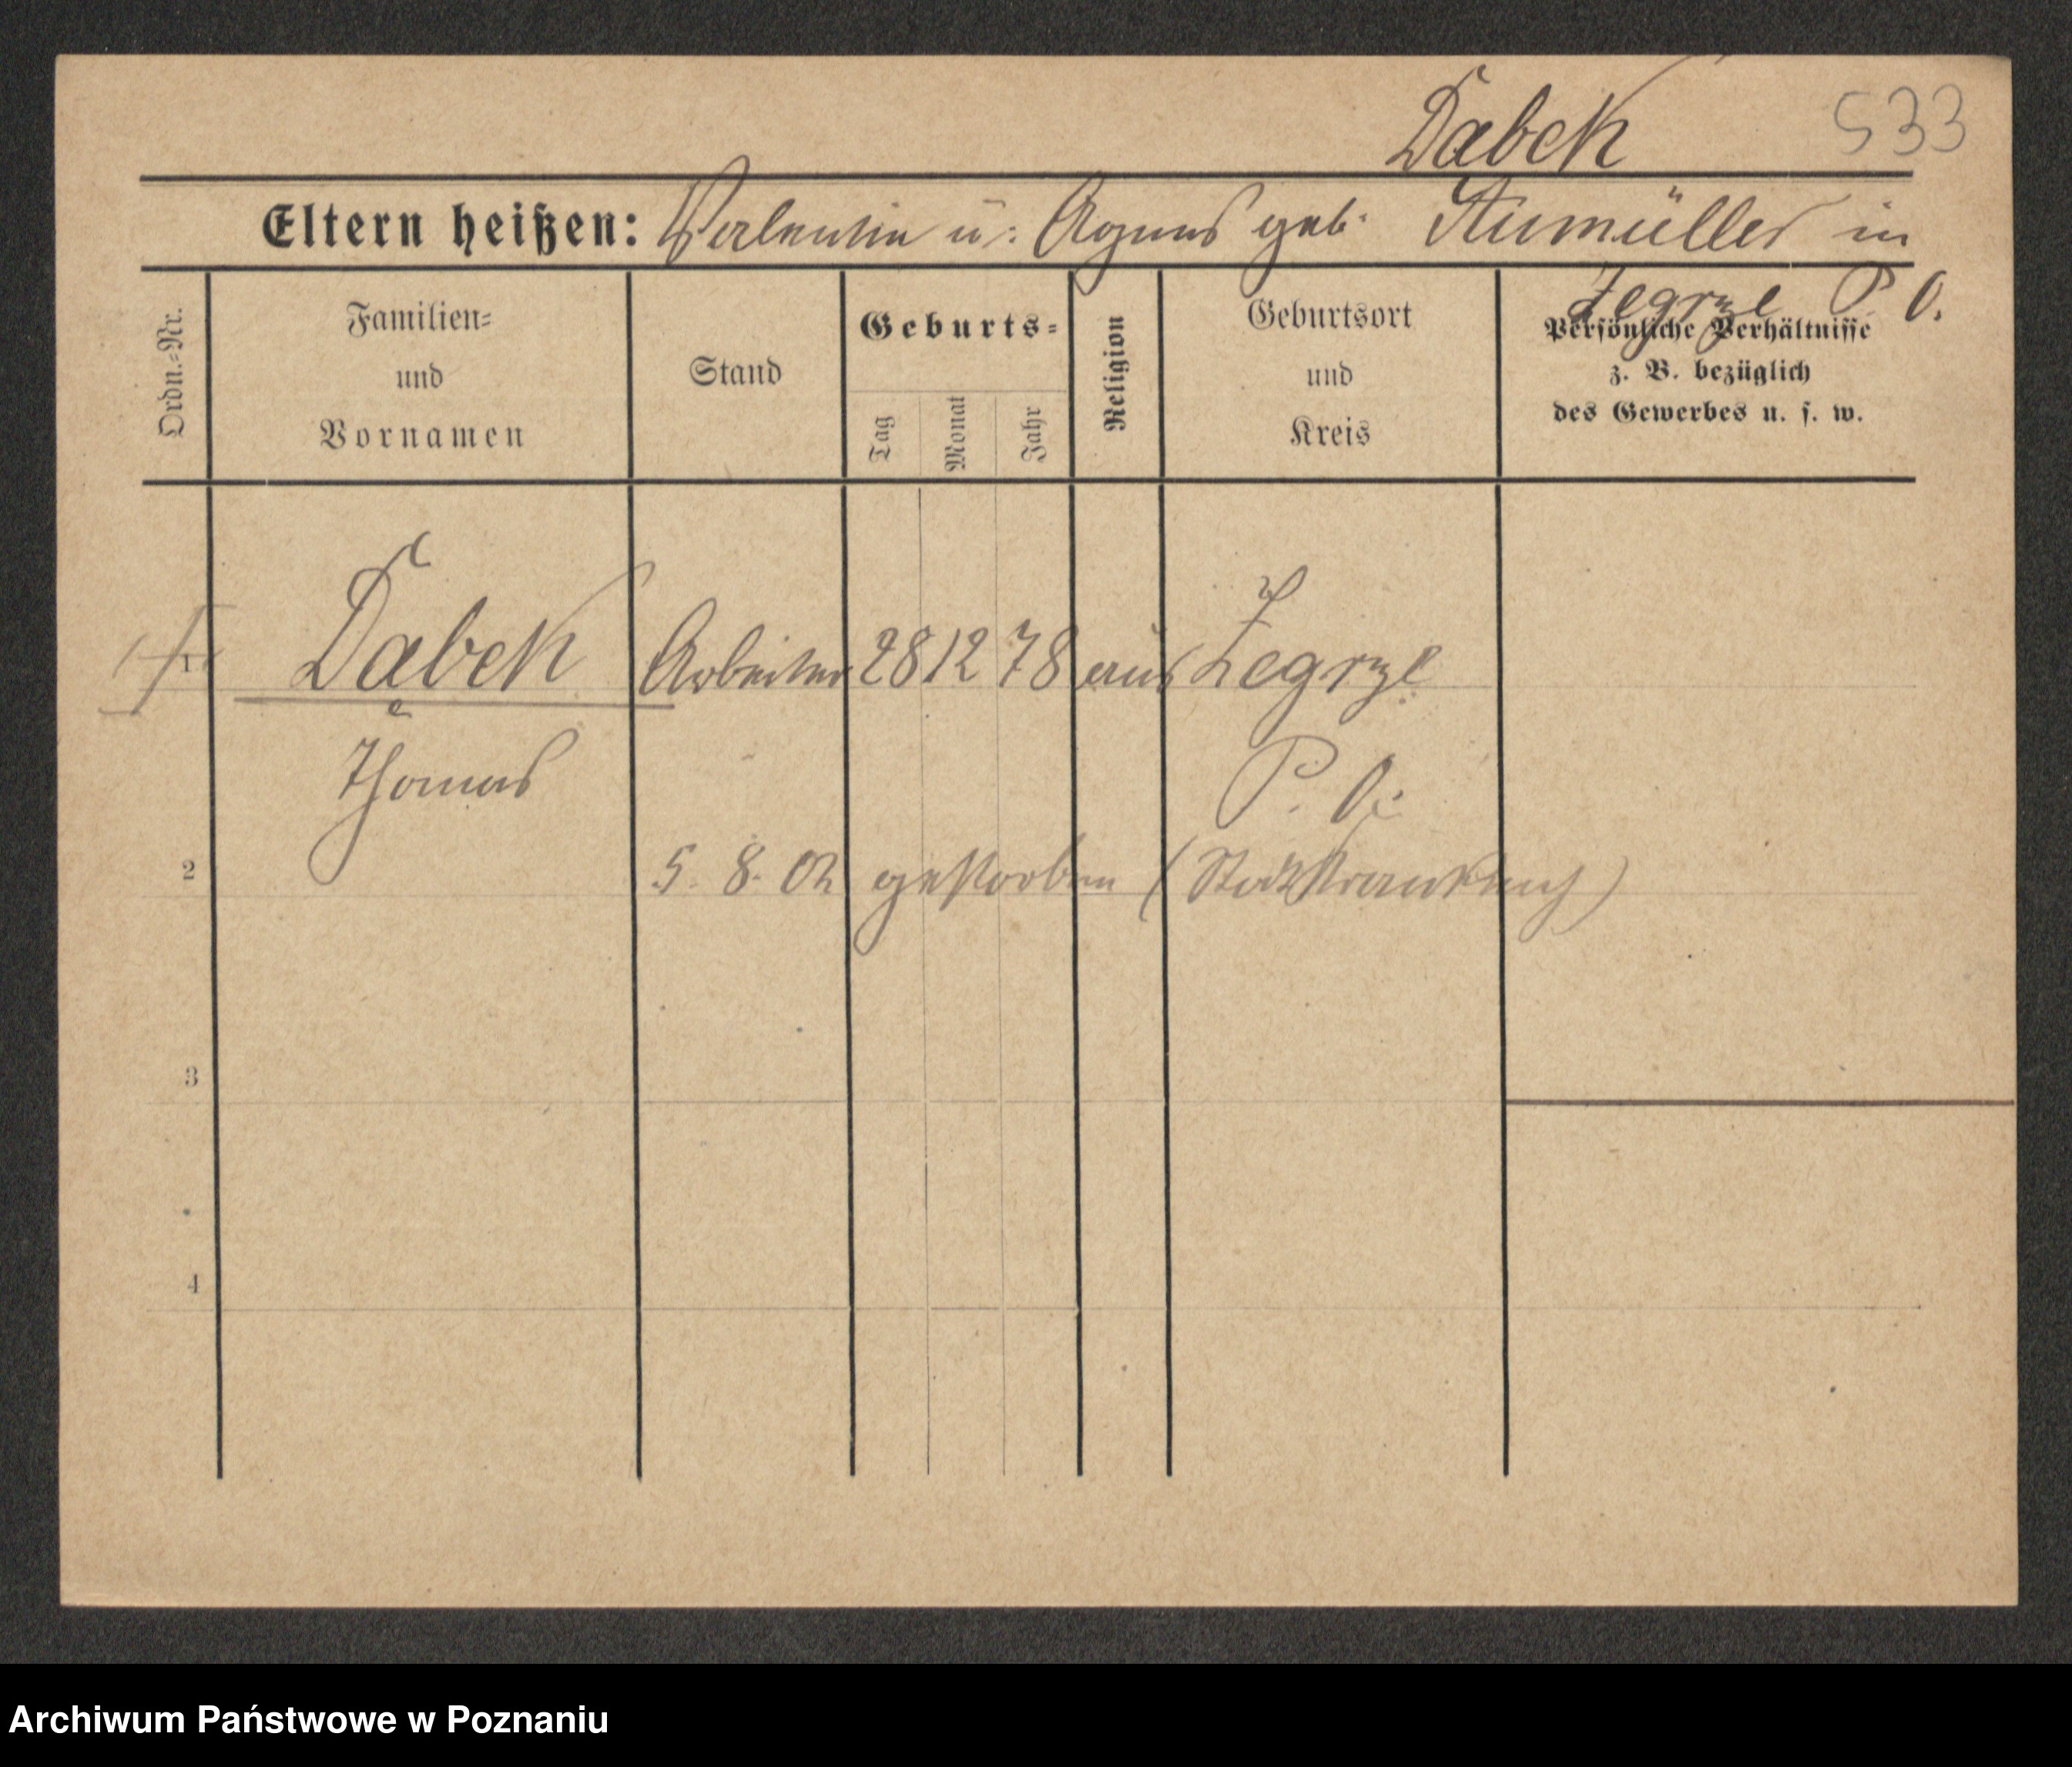 Dabek 533
Eltern heißen: Valentin u. Agnes geb. in
Zegrze P. O.
Ordn.-Nr.
Familien-
und
Vornamen
Stand
Geburts-
Tag
Monat
Jahr
Religion
Geburtsort
und
Kreis
Persönliche Verhältnisse
z. B. bezüglich
des Gewerbes u. s. w.
1 Dąbek Arbeiter 28 12 78 aus Zegrze
Thomas P. O.
2 5. 8. 02 gestorben
3
4
Archiwum Państwowe w Poznaniu